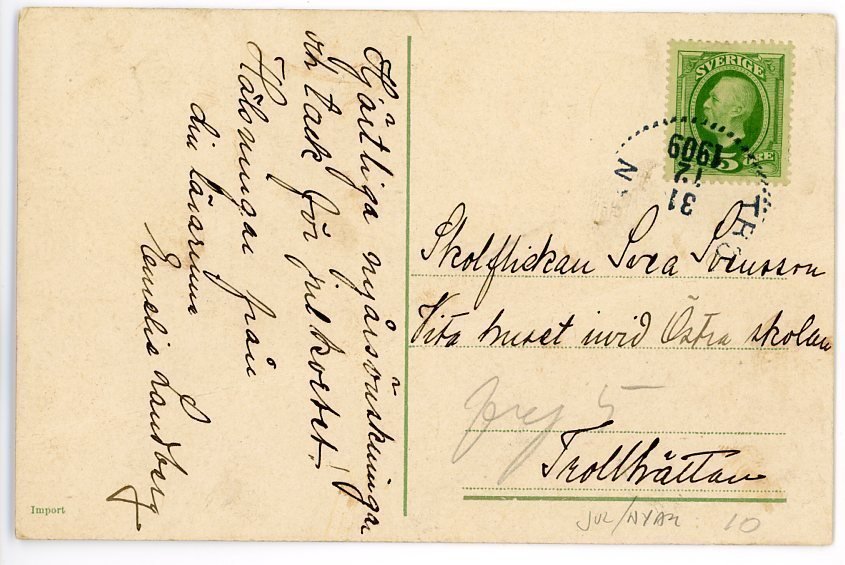 Hjärtliga nyårsönskningar
och tack för julkortet!
Hälsningar från
din lärarinna
Emelie Sandberg
SVERIGE
5 ÖRE
31
12
1909
Skolflickan Svea Svensson
Vita huset invid Östra skolan
Trollhättan
Import
JUL/NYÅR 10